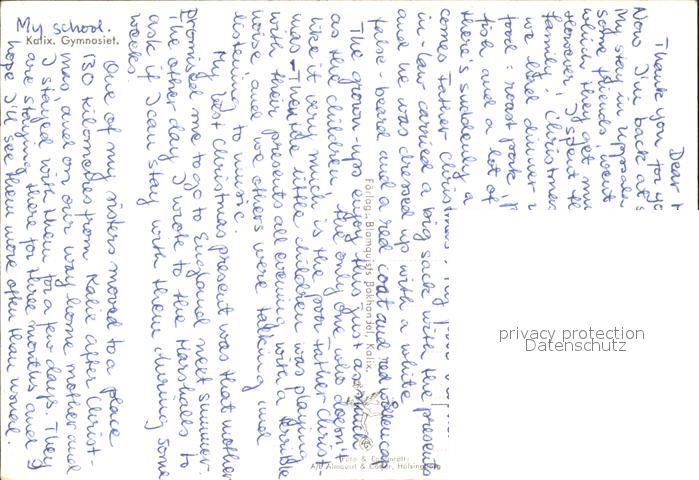 My school.
Kalix. Gymnasiet.
Dear
Thank you for yo
Now I'm back at s
My stay in Uppsala
some friends, went
which they get mu
However, I spent th
family, Christmas
we had dinner
food: roast pork,
fish and a lot of
there's suddenly a
comes Father Christmas. My
in-law carried a big sack with the presents
and he was dressed up with a white
false-beard and a red coat and red
The grown-ups enjoy this just as much
as the children. The only one who doesn't
like it very much is the poor Father Christ-
mas. The little children was playing
with their presents all evening with a terrible
noise and we others were talking and
listening to music.
My best Christmas present was that mother
promised me to go to England next summer.
The other day I wrote to the Marshalls to
ask if I can stay with them during some
weeks.
One of my sisters moved to a place
130 kilometres from Kalix after Christ-
mas and on our way home mother and
I stayed with them for a few days. They
are staying there for three months and
hope I'll see them more often than usual.
Förlag: Blomquists Bokhandel, Kalix.
Foto & Ensamrätt:
A/B Almqvist & Cöster, Hälsingborg
privacy protection
Datenschutz